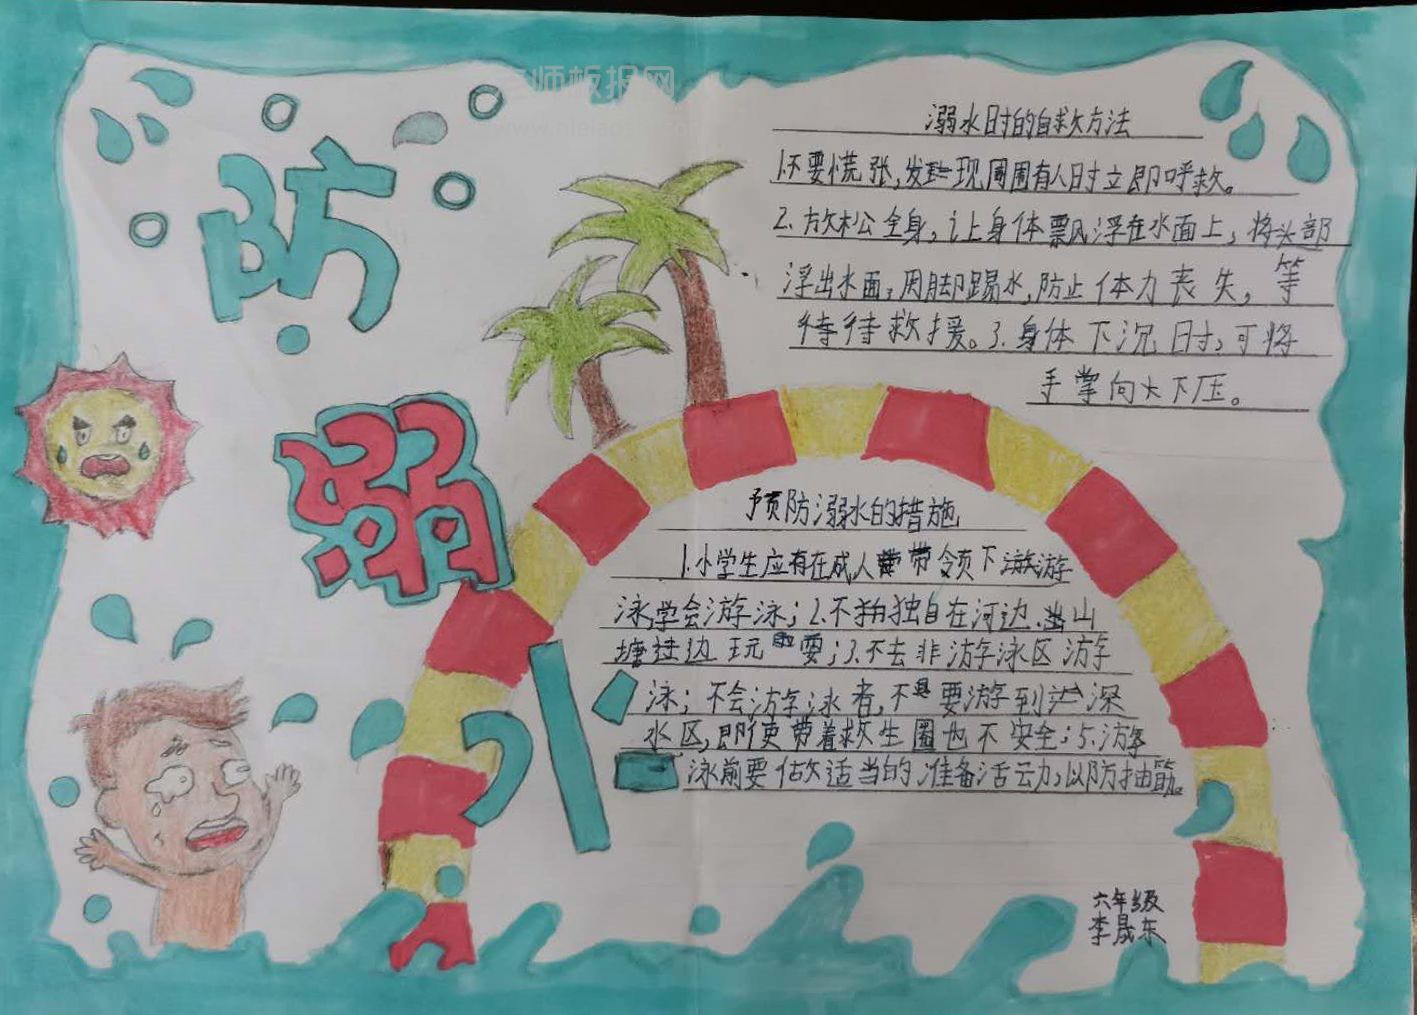 防
溺
水
溺水时的自救方法
1.不要慌张,发现周围有人时立即呼救。
2.放松全身,让身体飘浮在水面上,将头部
浮出水面,用脚踢水,防止体力丧失,等
待待救援。3.身体下沉时,可将
手掌向下压。
预防溺水的措施
1.小学生应在成人带领下游游
泳学会游泳;2.不独自在河边.山
塘边玩耍;3.不去非游泳区游
泳;不会游泳者,不要游到深
水区,即使带着救生圈也不安全;5.游
泳前要做适当的准备活动,以防抽筋。
六年级
李晟东
老师板报网